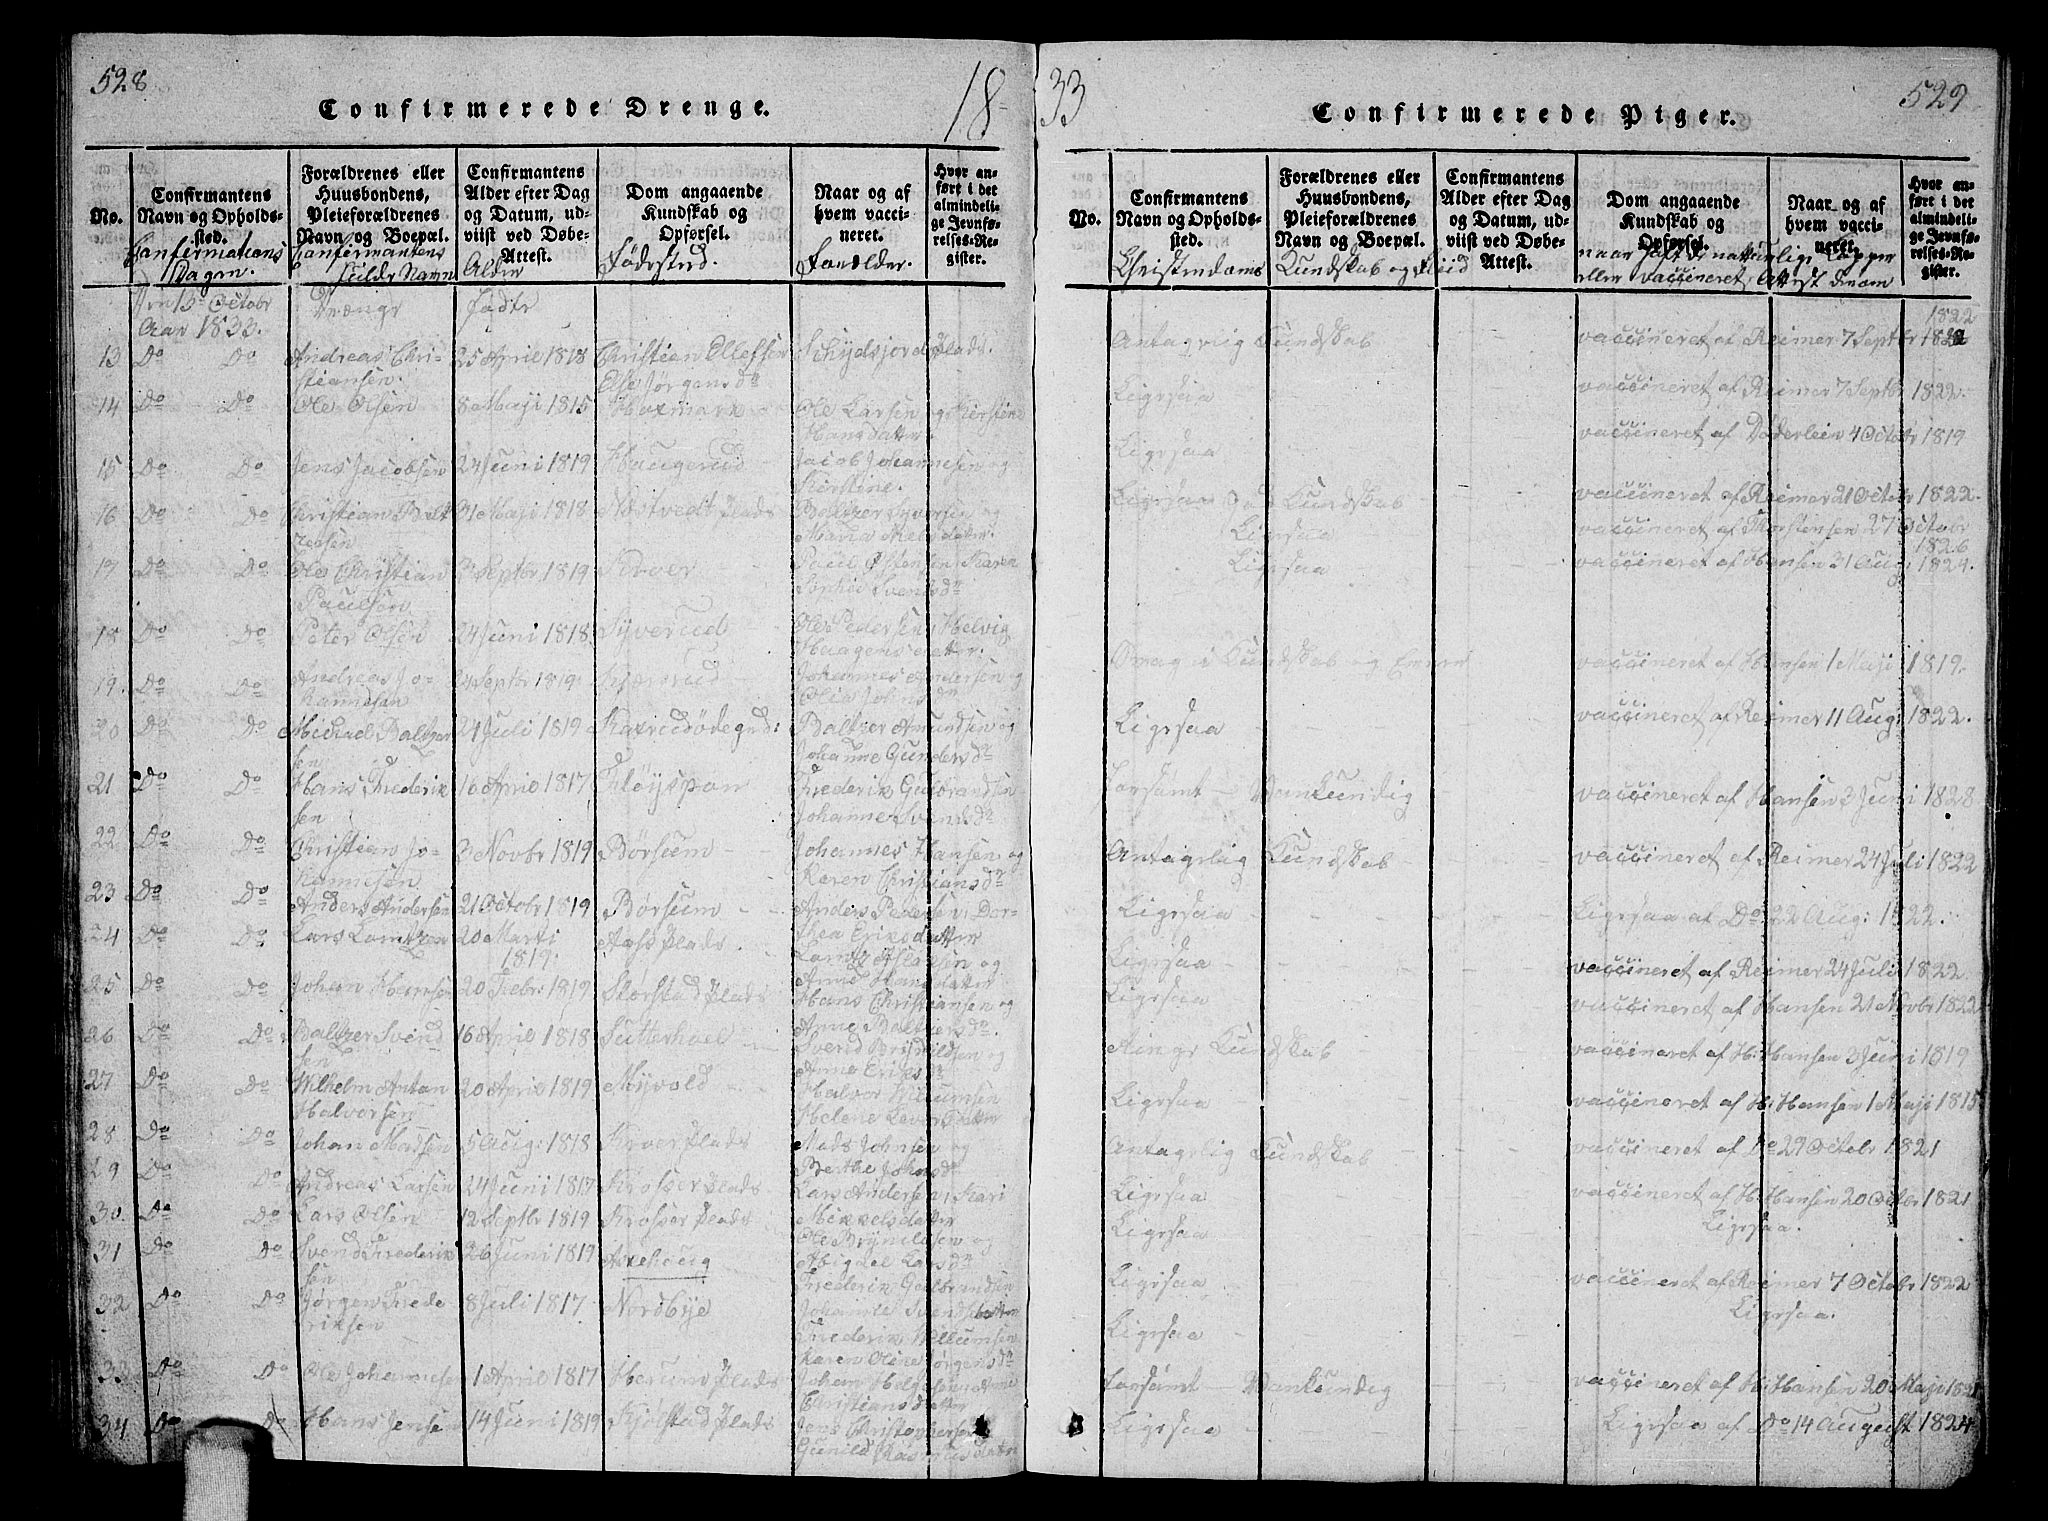 528
Confirmerede Drenge.
18-
No.
Confirmantens Navn og Opholds-sted.
Forældrenes eller Huusbondens, Pleieforældrenes Navn og Boepæl.
Confirmantens Alder efter Dag og Datum, ud-viist ved Døbe-Attest.
Dom angaaende Kundskab og Opførsel.
Naar og af hvem vacci-neret.
Hvor an-ført i det almindeli-ge Jevnfø-relses-Re-gister.
Confirmations Dagen.
Confirmantens fulde Navn
Alder
Fødested.
Forælder.
Den 13de Octobr Aar 1833.
Drænge
fødte
13 Do Do Andreas Chri-stiansen. 25 April 1818 Christian Ellefsen Else Jørgensdr Schydsjordplads.
14 Do Do Ole Olsen 8 Maji 1815 Ole Larsen og Kerstine Hansdatter.
15 Do Do Jens Jacobsen 24 Juni 1819 Haugerud Jacob Johannesen og Kirstine.
16 Do Do Christian Balt-zersen 31 Maji 1818 Næstvedt Plads Baltzer Syversen og Maria Nielsdatter.
17 Do Do Ole Christian Paulsen Septbr 1819 Krver Paul Østensen, Karen Svensdr
18 Do Do Peter Olsen 24 Juni 1818 Syverud Ole Pedersen, Helvig Haagensdatter.
19. Do Do Andreas Jo-hannesen 24 Septbr 1819 Johannes Andersen og
20 Do Do Michael Baltzer-sen 24 Juli 1819 Baltzer Amundsen og Johanne Gundersdr
21 Do Do Hans Frederik-sen 16 April 1817 Fløyspon Frederik Gulbrandsen Johanne Svensdr
22 Do Do Christian Jo-hannesen 3 Novbr 1819 Børsum Johannes Hansen og Karen Christiansdr
23 Do Do Anders Andersen 21 Octobr 1819 Børsum Anders Pedersen, Dor-thea Eriksdatter
24 Do Do Lars Lamtzen 20 Marti 1819. Aass Plads. og Anne Hansdatter
25 Do Do Johan Hansen 20 Febr: 1819 Størstad Plads Hans Christiansen og Anne Baltzersdr.
26 Do Do Baltzer Svend-sen 16 April 1818 Sutterhoel Svend Brynildsen og Anne Eriksdr
27 Do Do Wilhelm Anton Halvorsen 20 April 1819 Myvold Halvor Willumsen Helene Levorsdatter
28 Do Do Johan Madsen 5 Aug: 1818 Krver Plads Mads Johnsen og Berthe Johansdr
29 Do Do Andreas Larsen 24 Juni 1817 Krosser Plads Lars Andersen, Kari Mikkelsdatter
30. Do Do Lars Olsen 12 Septbr 1819 Krosser Plads Ole Brynildsen og Abigael Larsdr
31 Do Do Svend Frederik-sen 26 Juni 1819 Axehaug Frederik Gulbrandsen Johanne Svendsdatter
32 Do Do Jørgen Frede-riksen 8 Juli 1817 Nordbye Frederik Willumsen Karen Oline Jørgensdr
33 Do Do Ole Johannesen 1 April 1817 Herum Plads Johan Helgesen, Anne Christiansdatter
34 Do Do Hans Jensen 14 Juni 1819 Kjølstad Plads Jens Christophersen Gunild Rasmusdatter
33
Confirmerede Piger.
529
No.
Confirmantens Navn og Opholds-sted.
Forældrenes eller Huusbondens, Pleieforældrenes Navn og Boepæl.
Confirmantens Alder efter Dag og Datum, ud-viist ved Døbe-Attest.
Dom angaaende Kundskab og Opførsel.
Naar og af hvem vacci-neret.
Hvor an-ført i det almindeli-ge Jevnfø-relses-Re-gister.
Christendoms Kundskab og Fliid
naar haft de naturlige Copper eller vaccineret, Attest derom
1822
Antagelig Kundskab vaccineret af Reimer 7 Septbr 1822
Ligesaa vaccineret af Reimer 7 Septbr 1822.
Ligesaa vaccineret af Døderlein 4 Octobr 1819
Ligesaa God Kundskab vaccineret af Reimer 21 Octobr 1822.
Ligesaa vaccineret af Thorstensen 27 Octobr 1826
Ligesaa vaccineret af Hansen 31 Aug: 1824.
Svag i Kundskab og Evner vaccineret af Hansen 1 Maji 1819.
Ligesaa vaccineret af Reimer 11 Aug: 1822.
Forsømt Vankundig vaccineret af Hansen 3 Juni 1828
Antagelig Kundskab vaccineret af Reimer 24 Juli 1822
Ligesaa Ligesaa af Do 22 Aug: 1822.
Ligesaa vaccineret af Reimer 24 Juli 1822
Ligesaa vaccineret af Hansen 21 Novbr 1822
Ringe Kundskab vaccineret af H: Hansen 3 Juni 1819
Ligesaa vaccineret af H: Hansen 1 Maji 1815
Antagelig Kundskab vaccineret af Do 29 Octobr 1821
Ligesaa vaccineret af H: Hansen 20 Octbr 1821
Ligesaa Ligesaa.
Ligesaa vaccineret af Reimer 7 Octobr 1822
Ligesaa Ligesaa.
Forsømt Vankundig vaccineret af H: Hansen 20 Maji 1821
Ligesaa Ligesaa af Do 14 August 1824